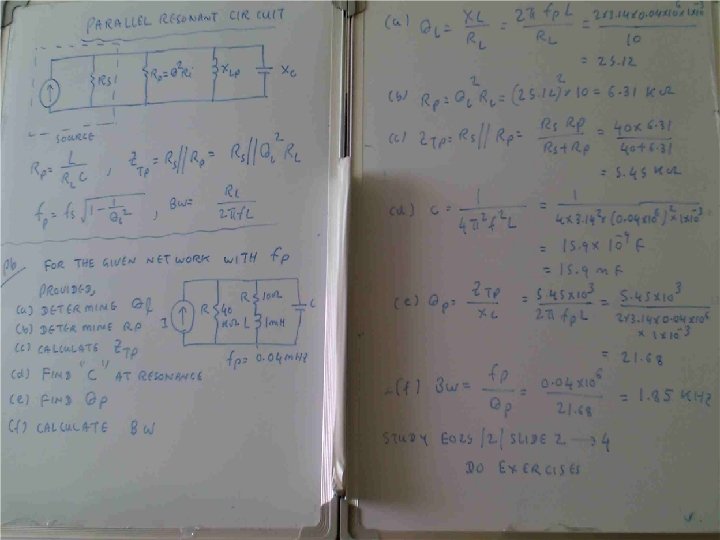 PARALLEL RESONANT CIRCUIT
Rs Rp=Q²Ri XLp Xc
SOURCE
Rp = L / RL C , ZTP = Rs//Rp = Rs//QL² RL
fp = fs √(1 - 1/QL²) , BW = RL / 2πL
Pb FOR THE GIVEN NETWORK WITH fp
PROVIDED,
(a) DETERMINE Ql
(b) DETERMINE RP
(c) CALCULATE ZTP
(d) FIND "C" AT RESONANCE
(e) FIND QP
(f) CALCULATE BW
I R 40 KΩ R 10Ω L 1mH C
fp = 0.04MHz
(a) QL = XL / RL = 2π fp L / RL = 2x3.14x0.04x10⁶x1x10⁻³ / 10
= 25.12
(b) Rp = QL² RL = (25.12)² x 10 = 6.31 KΩ
(c) ZTP = Rs // Rp = Rs Rp / Rs+Rp = 40x6.31 / 40+6.31
= 5.45 KΩ
(d) C = 1 / 4π²f²L = 1 / 4x3.14²x(0.04x10⁶)²x1x10⁻³
= 15.9x10⁻⁹ F
= 15.9 nF
(e) Qp = ZTP / XL = 5.45x10³ / 2π fp L = 5.45x10³ / 2x3.14x0.04x10⁶
x 1x10⁻³
= 21.68
(f) BW = fp / Qp = 0.04x10⁶ / 21.68 = 1.85 KHz
STUDY E025/2/SLIDE 2 → 4
DO EXERCISES